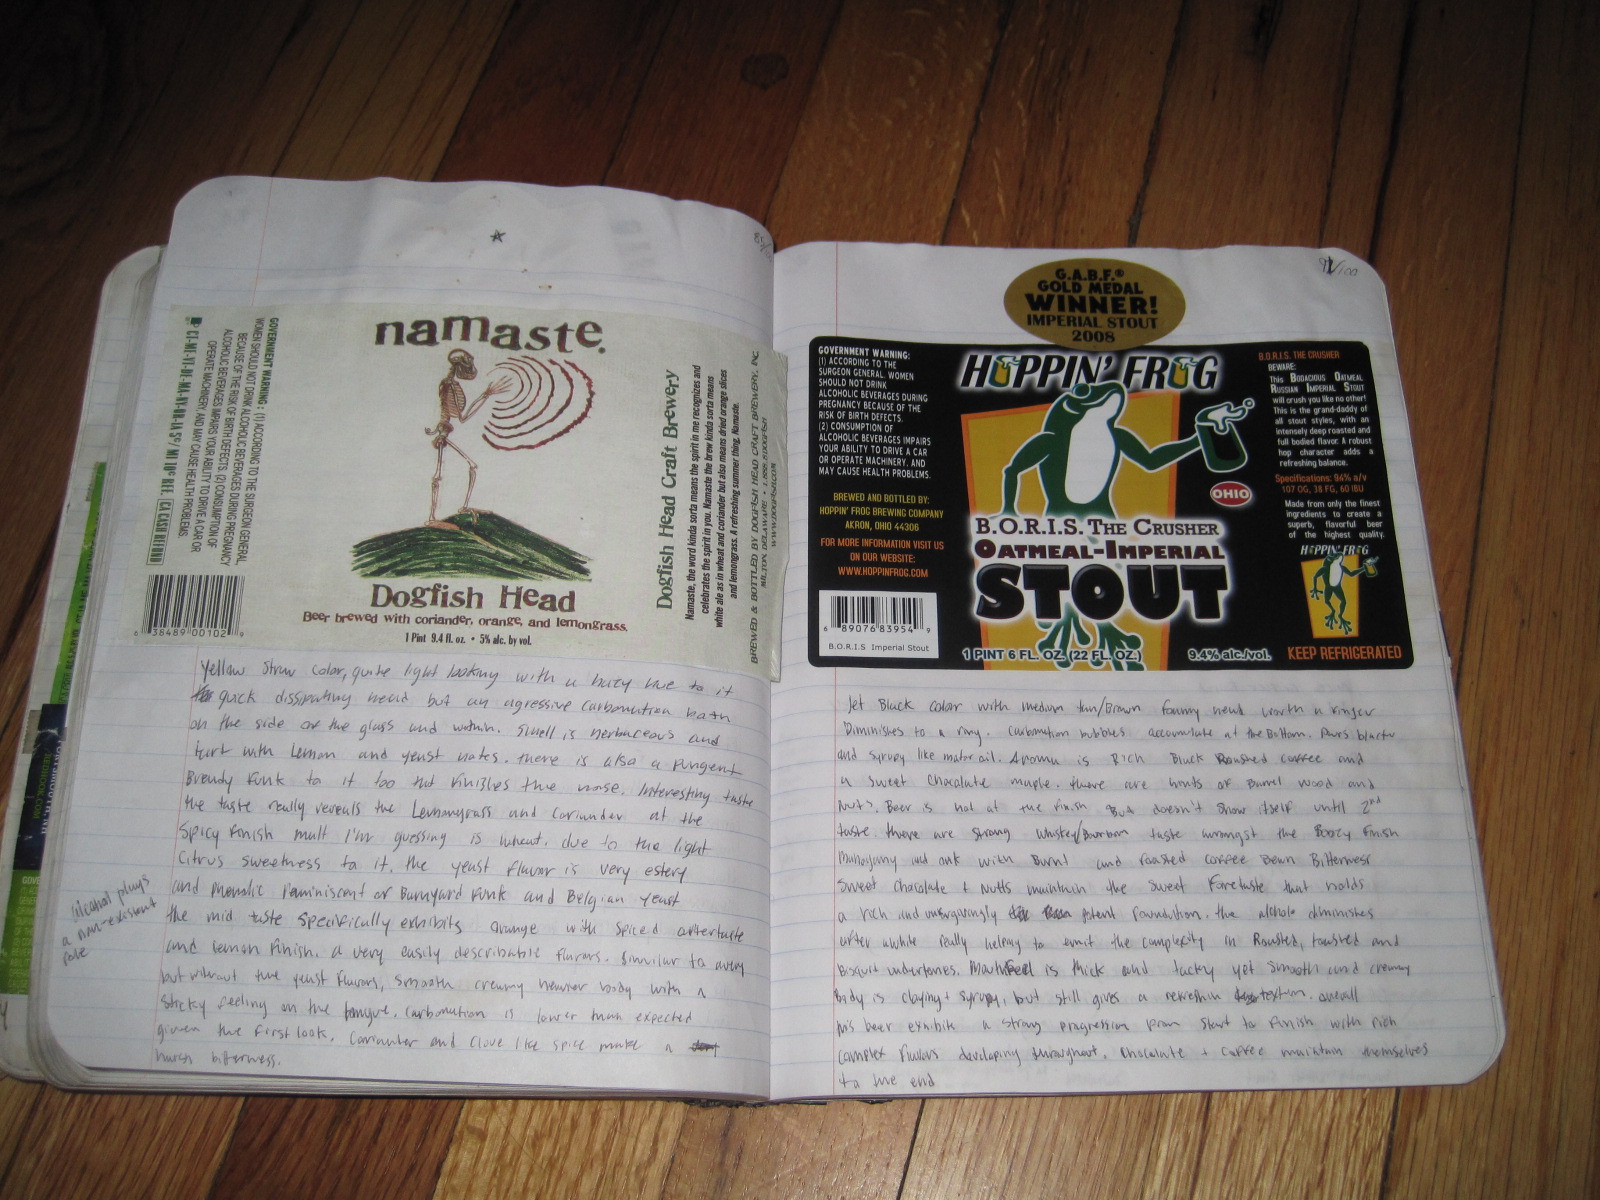 85/100
namaste.
GOVERNMENT WARNING: (1) ACCORDING TO THE SURGEON GENERAL,
WOMEN SHOULD NOT DRINK ALCOHOLIC BEVERAGES DURING PREGNANCY
BECAUSE OF THE RISK OF BIRTH DEFECTS. (2) CONSUMPTION OF
ALCOHOLIC BEVERAGES IMPAIRS YOUR ABILITY TO DRIVE A CAR OR
OPERATE MACHINERY, AND MAY CAUSE HEALTH PROBLEMS.
CA CASH REFUND
6 38489 00102 9
Dogfish Head
Beer brewed with coriander, orange, and lemongrass.
1 Pint 9.4 fl. oz. • 5% alc. by vol.
Dogfish Head Craft Brewery
Namaste, the word kinda sorta means the spirit in me recognizes and
celebrates the spirit in you. Namaste the brew kinda sorta means
white ale as in wheat and coriander but also means dried orange slices
and lemongrass. A refreshing summer thing. Namaste.
BREWED & BOTTLED BY DOGFISH HEAD CRAFT BREWERY, INC.
MILTON DELAWARE • 1.888.8DOGFISH
WWW.DOGFISH.COM
Yellow straw color, quite light looking with a hazy hue to it
quick dissipating head but an agressive carbonation both
on the side of the glass and within. Smell is herbaceous and
tart with lemon and yeast notes. there is also a pungent
Bready funk to it too that finishes the nose. Interesting taste
the taste really reveals the Lemongrass and coriander at the
spicy finish malt I'm guessing is wheat, due to the light
citrus sweetness to it. the yeast flavor is very estery
and phenolic reminiscent of Barnyard funk and Belgian yeast
the mid taste specifically exhibits orange with spiced aftertaste
and lemon finish. a very easily describable flavors. similar to
but without the yeast flavors, smooth creamy heavier body with a
sticky feeling on the tongue. carbonation is lower than expected
given the first look. Coriander and clove like spice make a
harsh bitterness.
alcohol plays
a non-existent
role
/100
G.A.B.F.®
GOLD MEDAL
WINNER!
IMPERIAL STOUT
2008
GOVERNMENT WARNING:
(1) ACCORDING TO THE
SURGEON GENERAL, WOMEN
SHOULD NOT DRINK
ALCOHOLIC BEVERAGES DURING
PREGNANCY BECAUSE OF THE
RISK OF BIRTH DEFECTS.
(2) CONSUMPTION OF
ALCOHOLIC BEVERAGES IMPAIRS
YOUR ABILITY TO DRIVE A CAR
OR OPERATE MACHINERY, AND
MAY CAUSE HEALTH PROBLEMS.
BREWED AND BOTTLED BY:
HOPPIN' FROG BREWING COMPANY
AKRON, OHIO 44306
FOR MORE INFORMATION VISIT US
ON OUR WEBSITE:
WWW.HOPPINFROG.COM
6 89076 83954 9
B.O.R.I.S Imperial Stout
HOPPIN' FROG
OHIO
B.O.R.I.S. THE CRUSHER
OATMEAL-IMPERIAL
STOUT
1 PINT 6 FL. OZ. (22 FL. OZ.)
9.4% alc./vol.
B.O.R.I.S. THE CRUSHER
BEWARE:
This Bodacious Oatmeal
Russian Imperial Stout
will crush you like no other!
This is the grand-daddy of
all stout styles, with an
intensely deep roasted and
full bodied flavor. A robust
hop character adds a
refreshing balance.
Specifications: 9.4% a/v
107 OG, 38 FG, 60 IBU
Made from only the finest
ingredients to create a
superb, flavorful beer
of the highest quality.
HOPPIN' FROG
KEEP REFRIGERATED
Jet Black color with medium tan/Brown foamy head worth a finger
Diminishes to a ring. Carbonation bubbles accumulate at the Bottom. Pours
and syrupy like motor oil. Aroma is Rich Black Roasted coffee and
a sweet chocolate maple. there are hints of Barrel wood and
Nuts. Beer is hot at the finish But doesn't show itself until 2nd
taste. there are strong whiskey/Bourbon taste amongst the Boozy finish
Mahogany and oak with Burnt and roasted coffee Bean Bitterness
Sweet chocolate + Nutts maintain the sweet foretaste that holds
a rich and potent foundation. the alchole diminishes
after awhile really helping to emit the complexity in Roasted, toasted and
Bisquit undertones. Mouthfeel is thick and tacky yet smooth and creamy
Body is claying + syrupy, but still gives a texture. overall
this beer exhibits a strong progression from start to finish with rich
complex flavors developing throughout. Chocolate + coffee maintain themselves
to the end